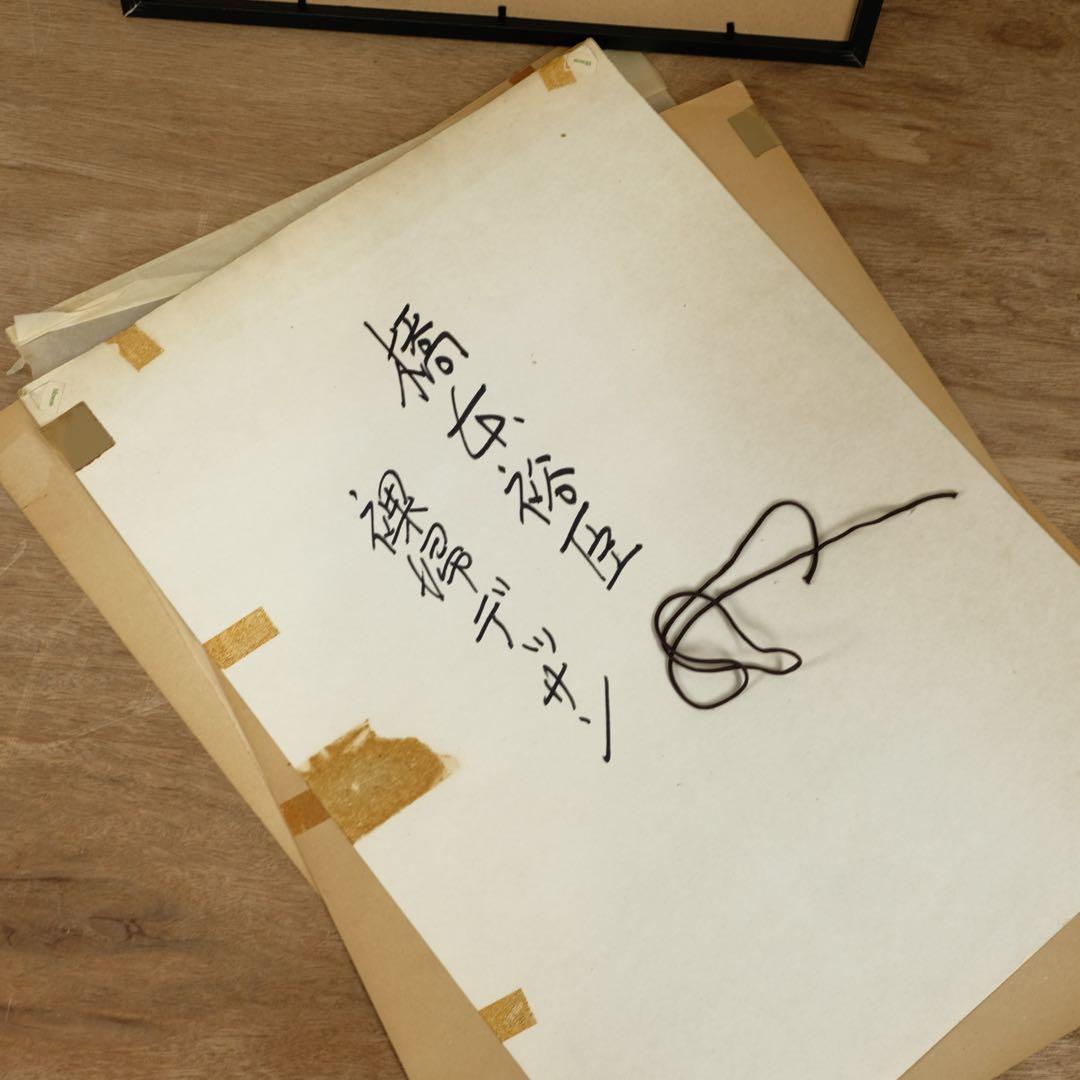 橋本裕臣
裸婦デッサン